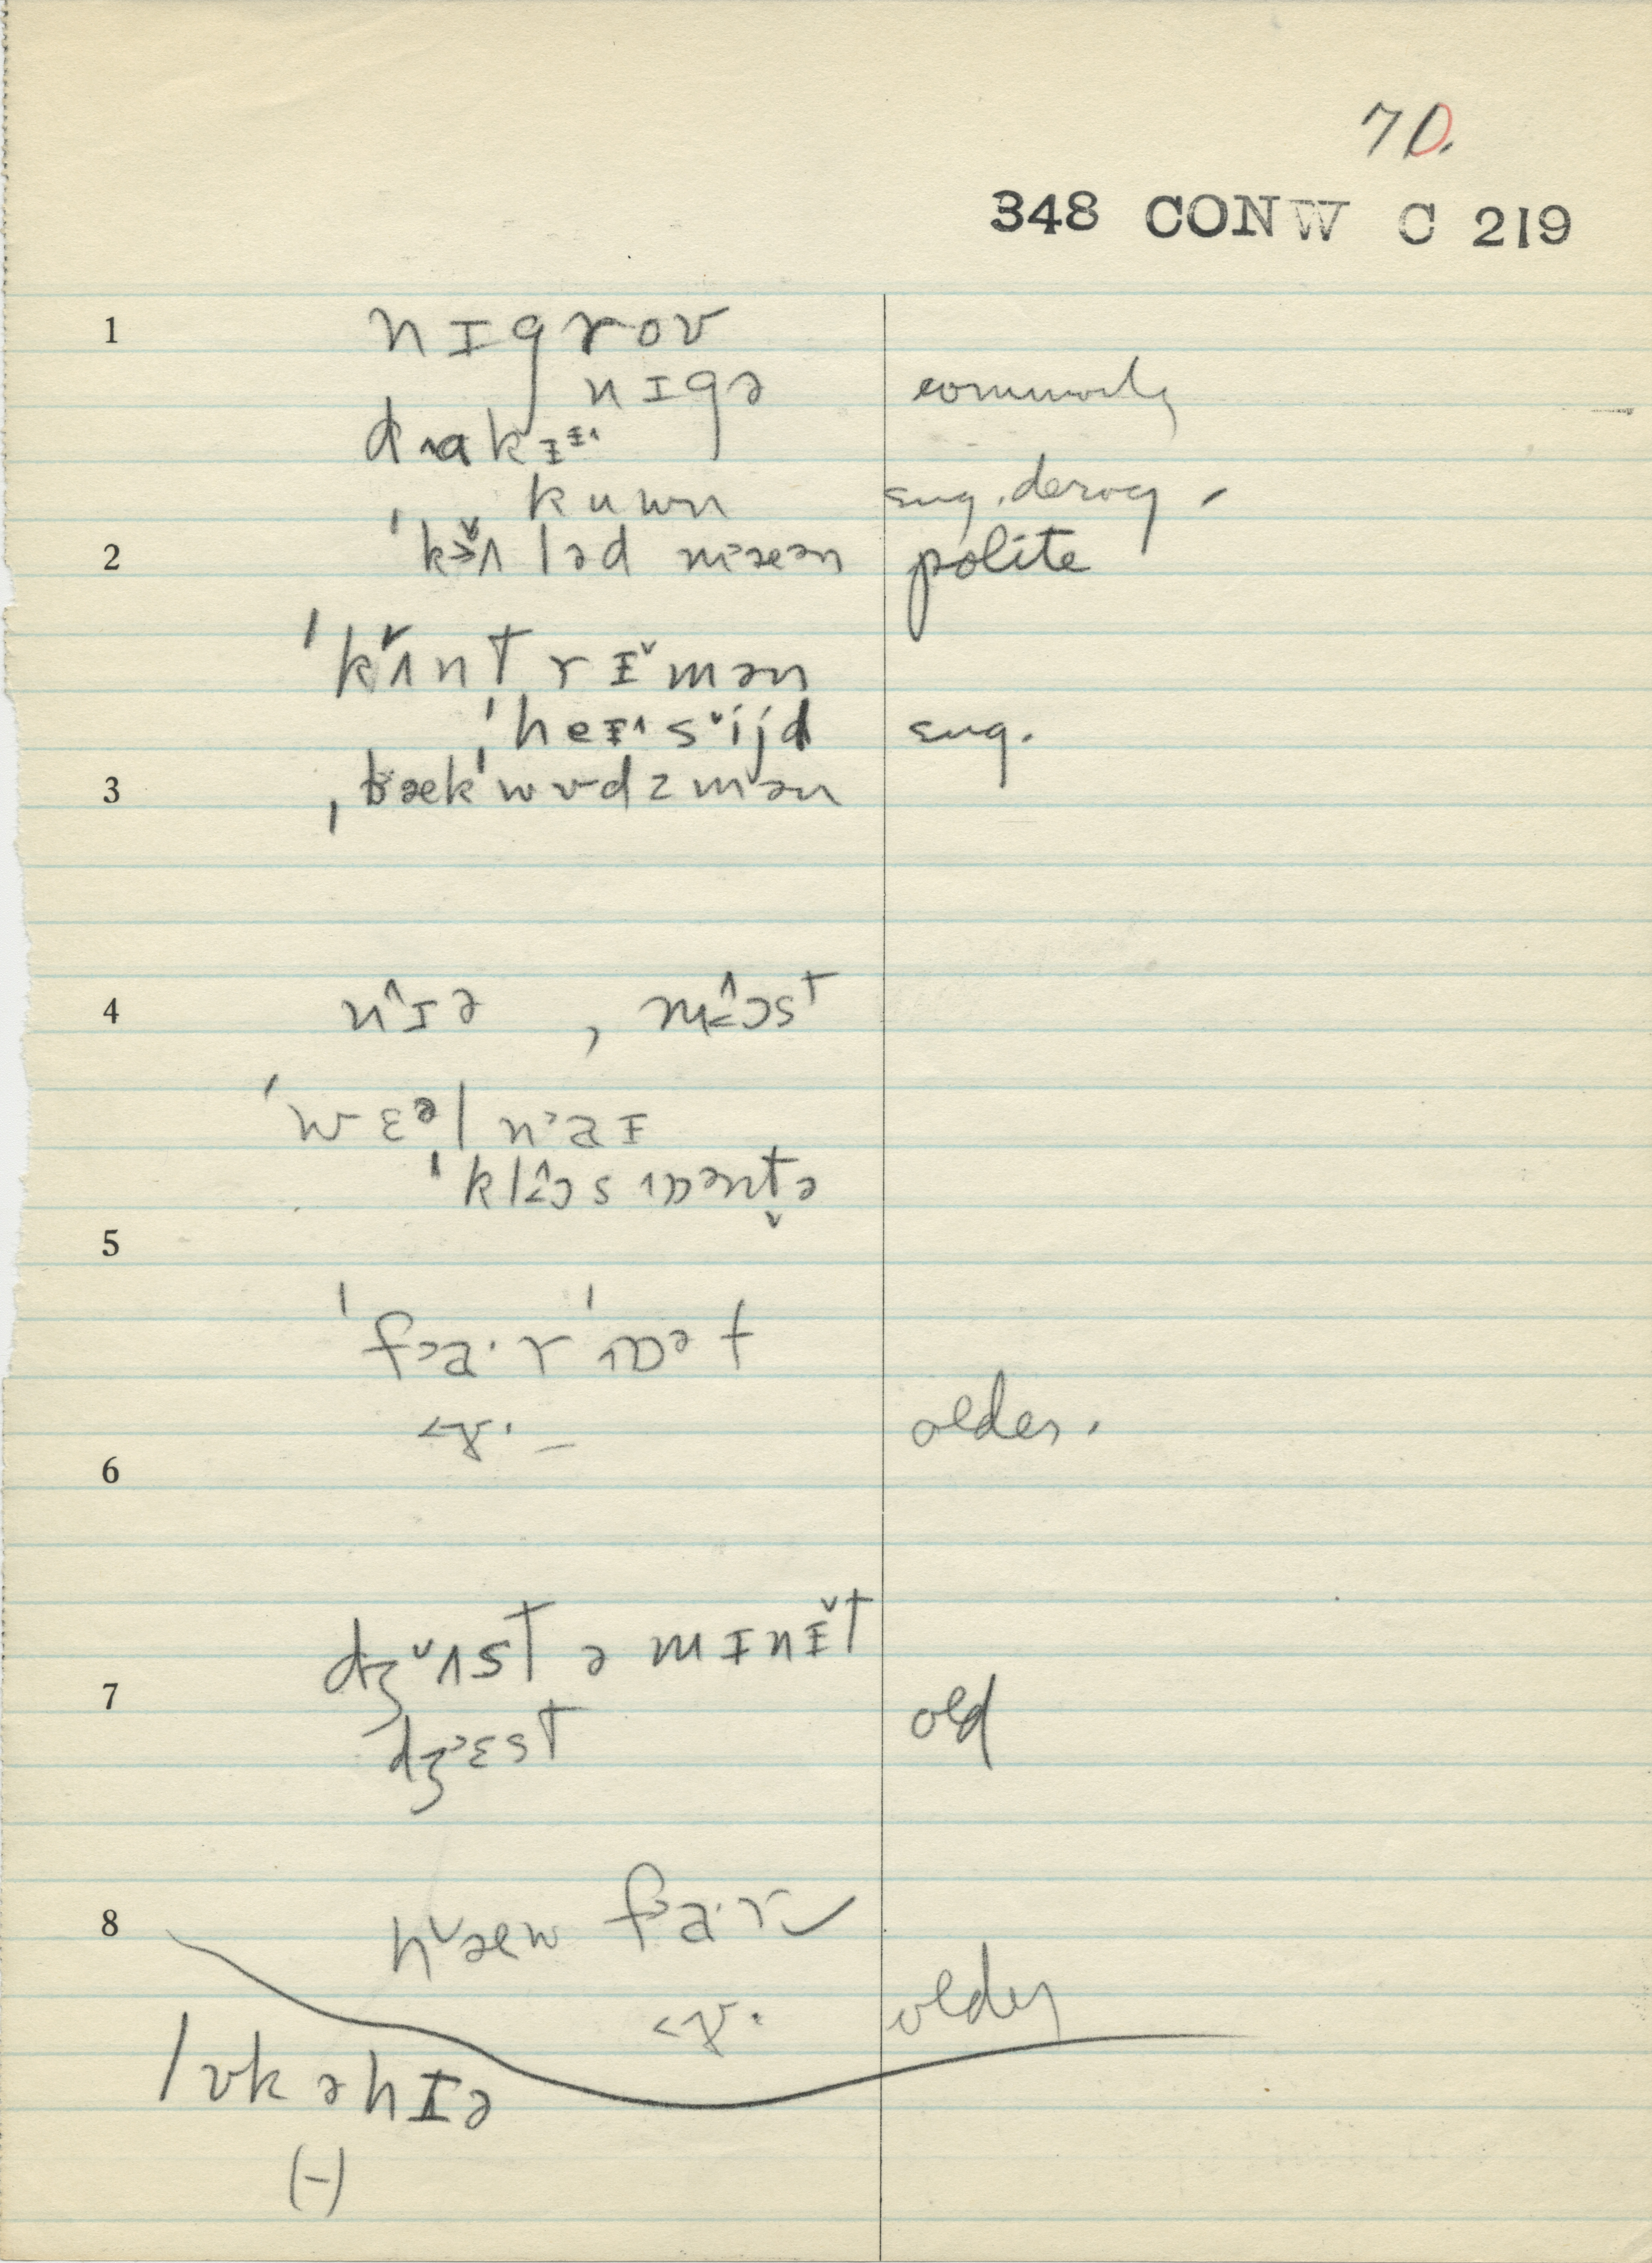 70.
348 CONW C 219
1 nɪgroʊ
nɪgə commonly
drakɪɪ^
kuwn sug. derog.
2 ˈkɜ˅ʌləd m˃æən polite
ˈkʌ˅ntrɪ˅mən
ˈheɪ^s˅ijd sug.
3 ˌbækˈwʊdzmən
4 n^ɪə , m<^ɔst
ˈwɛəln˃aɪ
ˈkl<^ɔs ɒən̬tə
5
ˈf˃a·rˈɒət
<ɤ·– older.
6
dʒ˅ʌst ə mɪnɪ˅t
7 old
dʒ˃ɛst
8 h˅æw f˃a·r
<ɤ· older
lʊk əhɪə
(-)